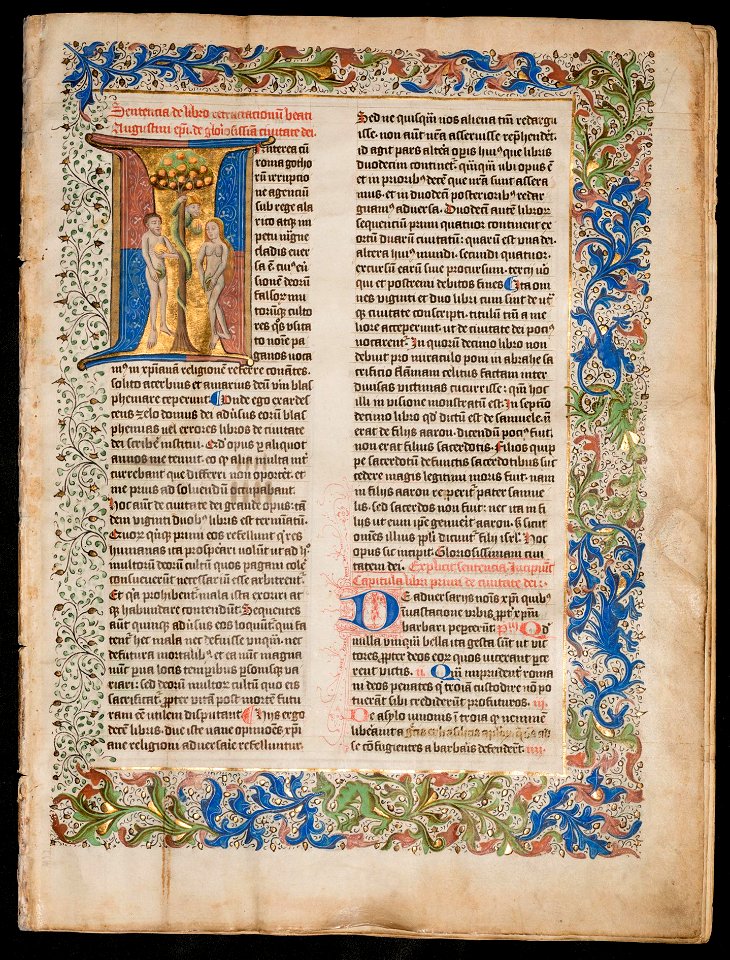 Sentencia de libro retractationū beati
Augustini epī. de gloriosissima ciuitate dei.
Interea cū
roma gotho
rū irruptio
ne agenciū
sub rege ala
rico atq̄ im
petu magne
cladis euer
sa ē cuiꝰ eū
sionē deorū
falsor̄ mu
torūq̄ culto
res q̄s usita
to noīe pa
ganos uoca
mꝰ in xp̄ianā religionē referre conātes.
solito acerbius et amarius deū uiu blas
phemare ceperunt. Unde ego exardes
cens zelo domus dei aduꝰsus eorū blas
phemias uel errores libros de ciuitate
dei scribē institui. Q̄d opus p aliquot
annos me tenuit. eo q̄ alia multa int̄
currebant que differri non oportēt. et
me prius ad soluendū occupabant.
Hoc aūt de ciuitate dei grande opus. tā
dem viginti duobꝰ libris est terminatū.
Quorꝫ qn̄q̄ primi eos refellunt q̄ res
humanas ita prosperari uolūt ut ad hꝰ
multorū deorū cultū quos pagani colē
consueuerūt necessariū esse arbitrent̄.
Et q̄a prohibent̄ mala ista exoriri at
q̄ habundare contendūt. Sequentes
aūt quinq̄ aduꝰsus eos loquūt̄. qui fa
tent̄ hec mala nec defuisse unq̄m. nec
defutura mortalibꝰ. et ea nūc magna
nūc pua locis temꝑibus ꝑsonisq̄ ua
riari. sed deorū multor̄ cultū quo eis
sacrificat̄. ꝓpter uitā post mortē futu
ram eē utilem disputant. Hijs ergo
decē libris due iste uane opiniōēs xp̄i
ane religioni aduersarie refelluntur.
Sed ne quisq̄m nos aliena tm̄ redargu
isse. non aūt nr̄a asseruisse rep̄henderet.
id agit pars altēa opis huiꝰ que libris
duodecim continet̄. q̄mq̄m ubi opus ē
et in priorībꝰ decē que nr̄a sunt assera
mus. et in duodecim posteriorībꝰ redar
guamꝰ aduersa. Duodecim autē libror̄
sequenciū primi quatuor continent ex
ortū duarū ciuitatū. quarū est una dei.
altera huiꝰ mundi. secundi quatuor.
excursū earū siue procursum. tercij uō
qui et postremi debitos fines. Ita om
nes viginti et duo libri cum sint de ut̄
q̄ ciuitate conscripti. titulū tm̄ a me
liore acceperunt. ut de ciuitate dei pociꝰ
uocarent̄. In quorū decimo libro non
debuit pro miraculo poni in abrahe sa
crificio flāmam celitus factam inter
diuisas victimas cucurrisse. qm̄ hoc
illi in visione monstratū est. In septīo
decimo libro qd̄ dictū est de samuele. n̄
erat de filijs aaron. dicendū pociꝰ fuit.
non erat filius sacerdotis. Filios quip
pe sacerdotū defunctis sacerdotibus suc
cedere magis legitimi moris fuit. nam
in filijs aaron reperit̄ pater samue
lis. sed sacerdos non fuit. nec ita in fi
lijs ut eum ipē genuerit aaron. s̄ sicut
omēs illius ppl̄i dicunt̄ filij isrl̄. Hoc
opus sic incipit. Gloriosissimam ciui
tatem dei. Explicit sentencia. Incipiūt
Capitula libri primi de ciuitate dei.
De aduersarijs noīs xp̄ī quibꝰ
in uastacione vrbis ꝓpt̄ xp̄m
barbari pepercerūt. Pm̄ Q̄d
nulla vnq̄m bella ita gesta sūt ut vic
tores ꝓpter deos eor̄ quos vicerant ꝑce
rent victis. ii. Q̄m̄ imprudent̄ roma
ni deos penates q̄ troiā custodire nō po
tuerāt sibi crediderūt profuturos. iii.
De asylo iunonis ī troia q̄ neminē
liberauit a
se cōfugientes a barbaris defenderēt. iiii.